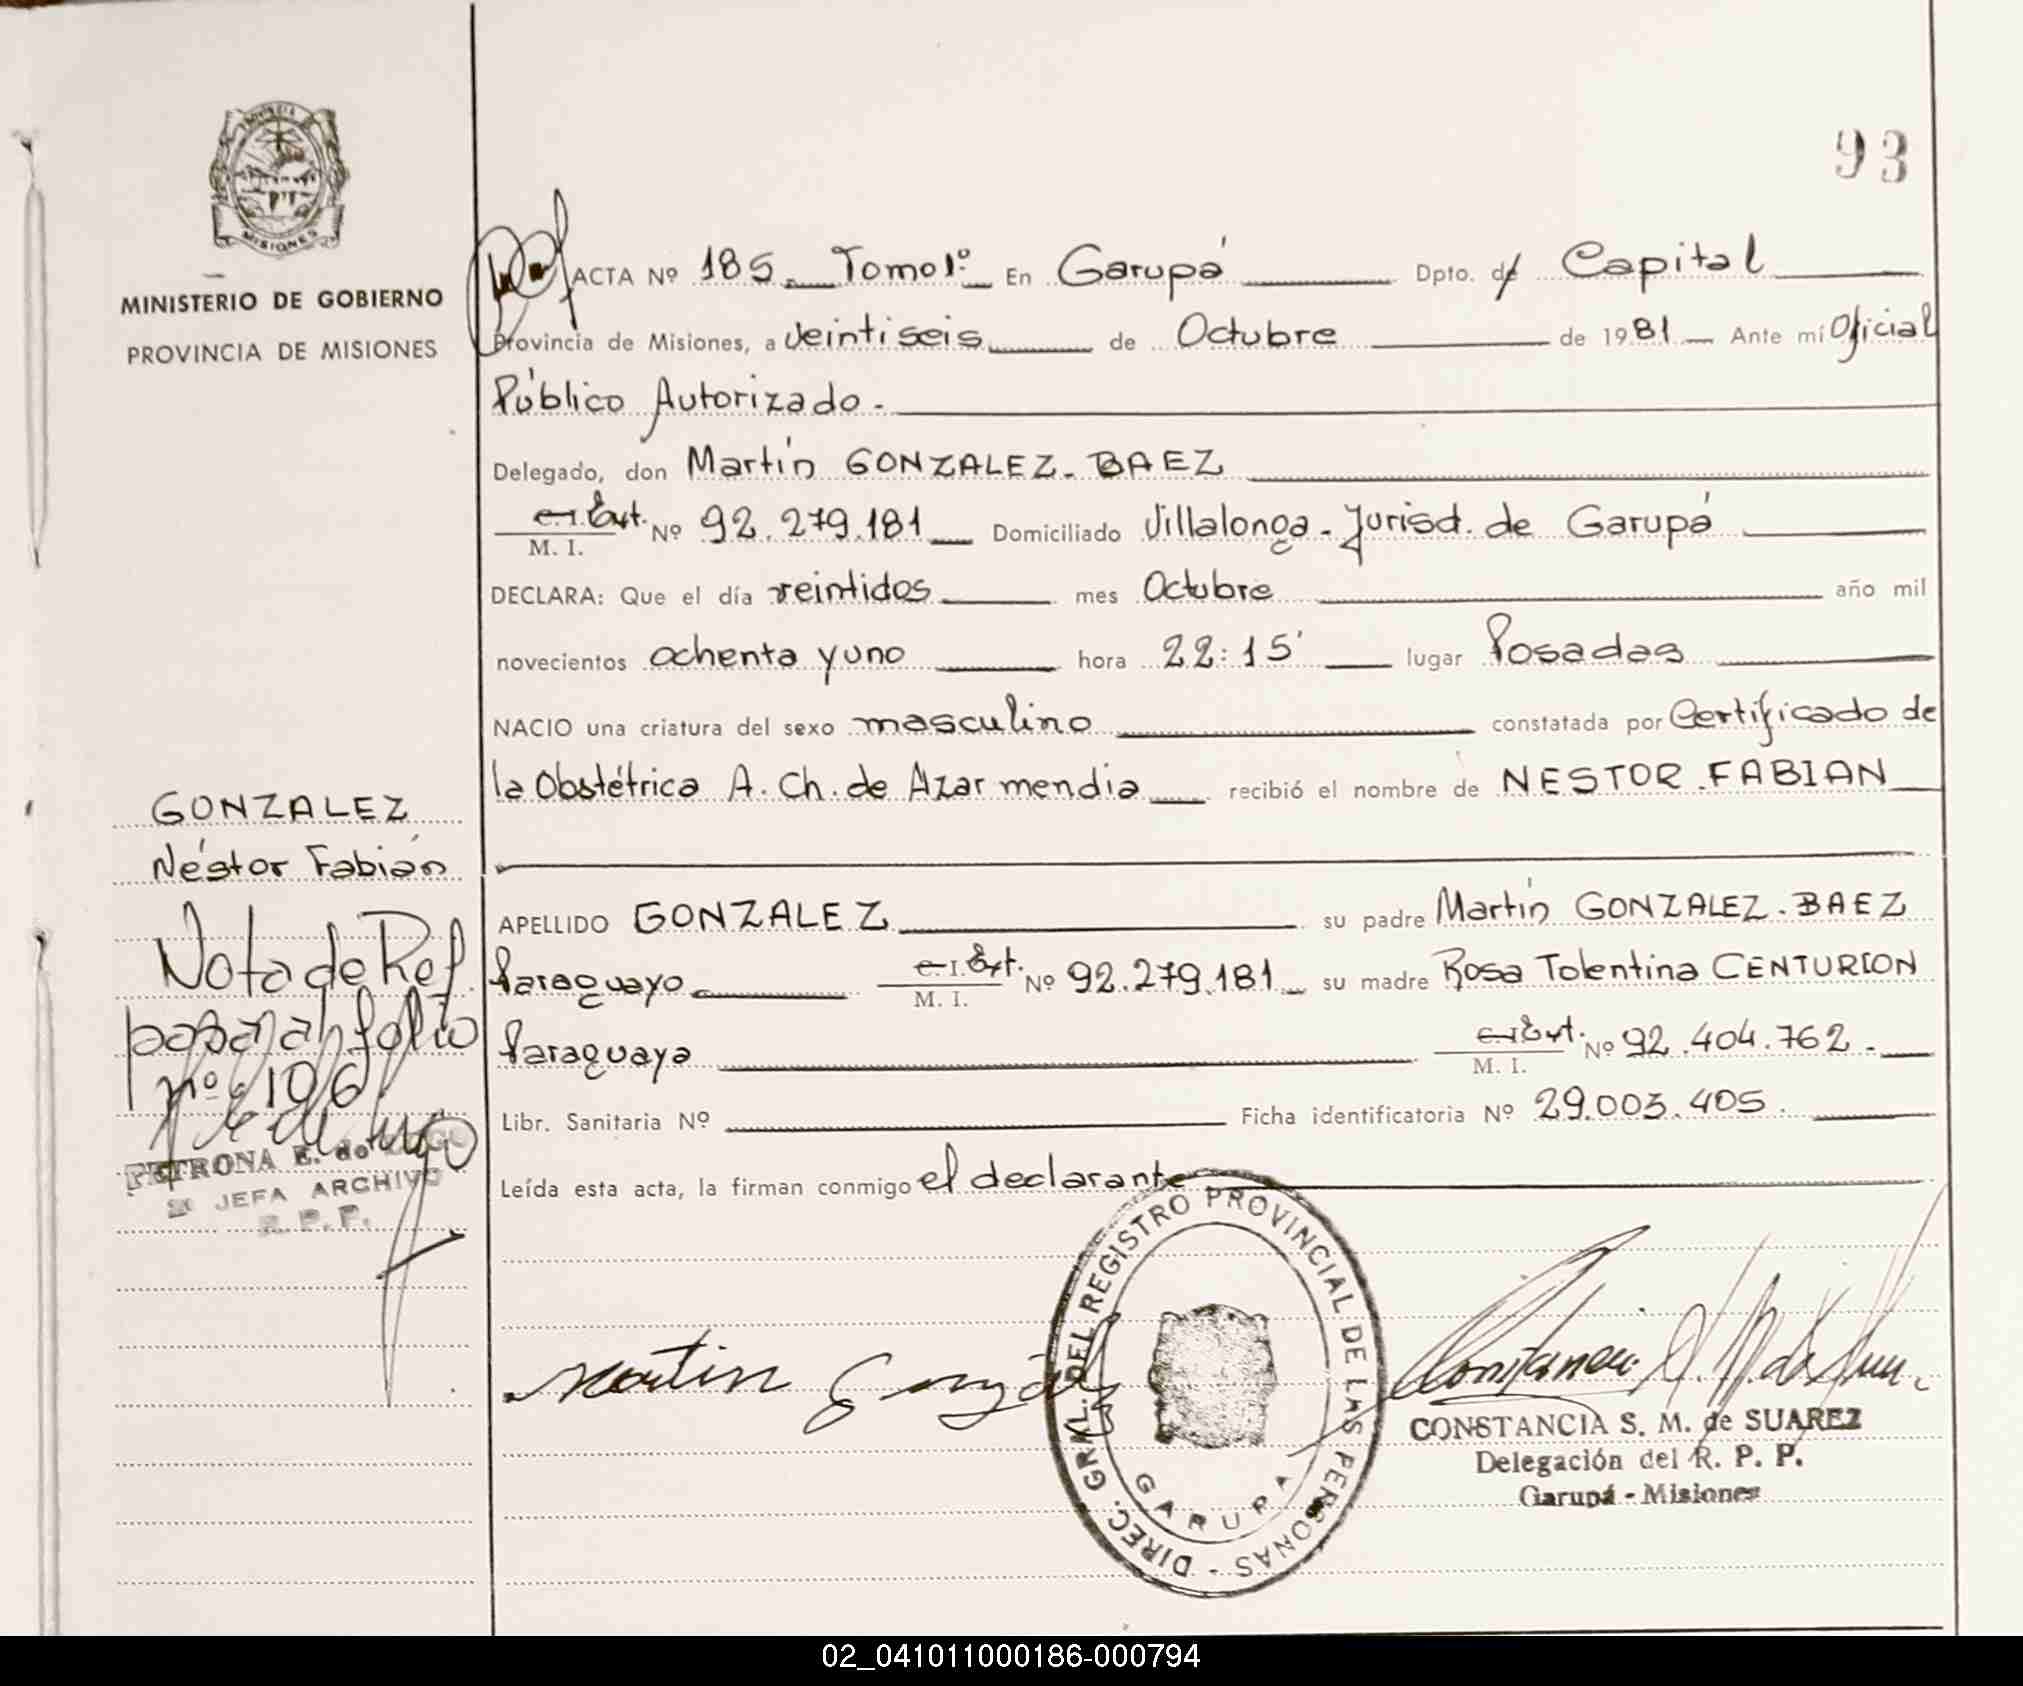 93
PROVINCIA
MISIONES
MINISTERIO DE GOBIERNO
PROVINCIA DE MISIONES
ACTA Nº 185. Tomo 1º En Garupá Dpto. d Capital
Provincia de Misiones, a veintiseis de Octubre de 1981 Ante mí Oficial
Público Autorizado.
Delegado, don Martín GONZALEZ-BAEZ
C.I. Ext. Nº 92.279.181 Domiciliado Villalonga-Jurisd. de Garupá
M. I.
DECLARA: Que el día veintidos mes Octubre año mil
novecientos ochenta y uno hora 22:15' lugar Posadas
NACIO una criatura del sexo masculino constatada por Certificado de
la Obstétrica A. Ch. de Azarmendia recibió el nombre de NESTOR FABIAN
APELLIDO GONZALEZ su padre Martín GONZALEZ-BAEZ
Paraguayo C.I. Ext. Nº 92.279.181 su madre Rosa Tolentina CENTURION
M. I.
Paraguaya C.I. Ext. Nº 92.404.762.
M. I.
Libr. Sanitaria Nº Ficha identificatoria Nº 29.003.405.
Leída esta acta, la firman conmigo el declarante
GONZALEZ
Néstor Fabián
Nota de Ref.
pasan al folio
nº 196
PETRONA E. de
JEFA ARCHIVO
R. P. P.
Martin Gonzalez
DIREC. GRAL. DEL REGISTRO PROVINCIAL DE LAS PERSONAS -
GARUPA
CONSTANCIA S. M. de SUAREZ
Delegación del R. P. P.
Garupá - Misiones
02_041011000186-000794